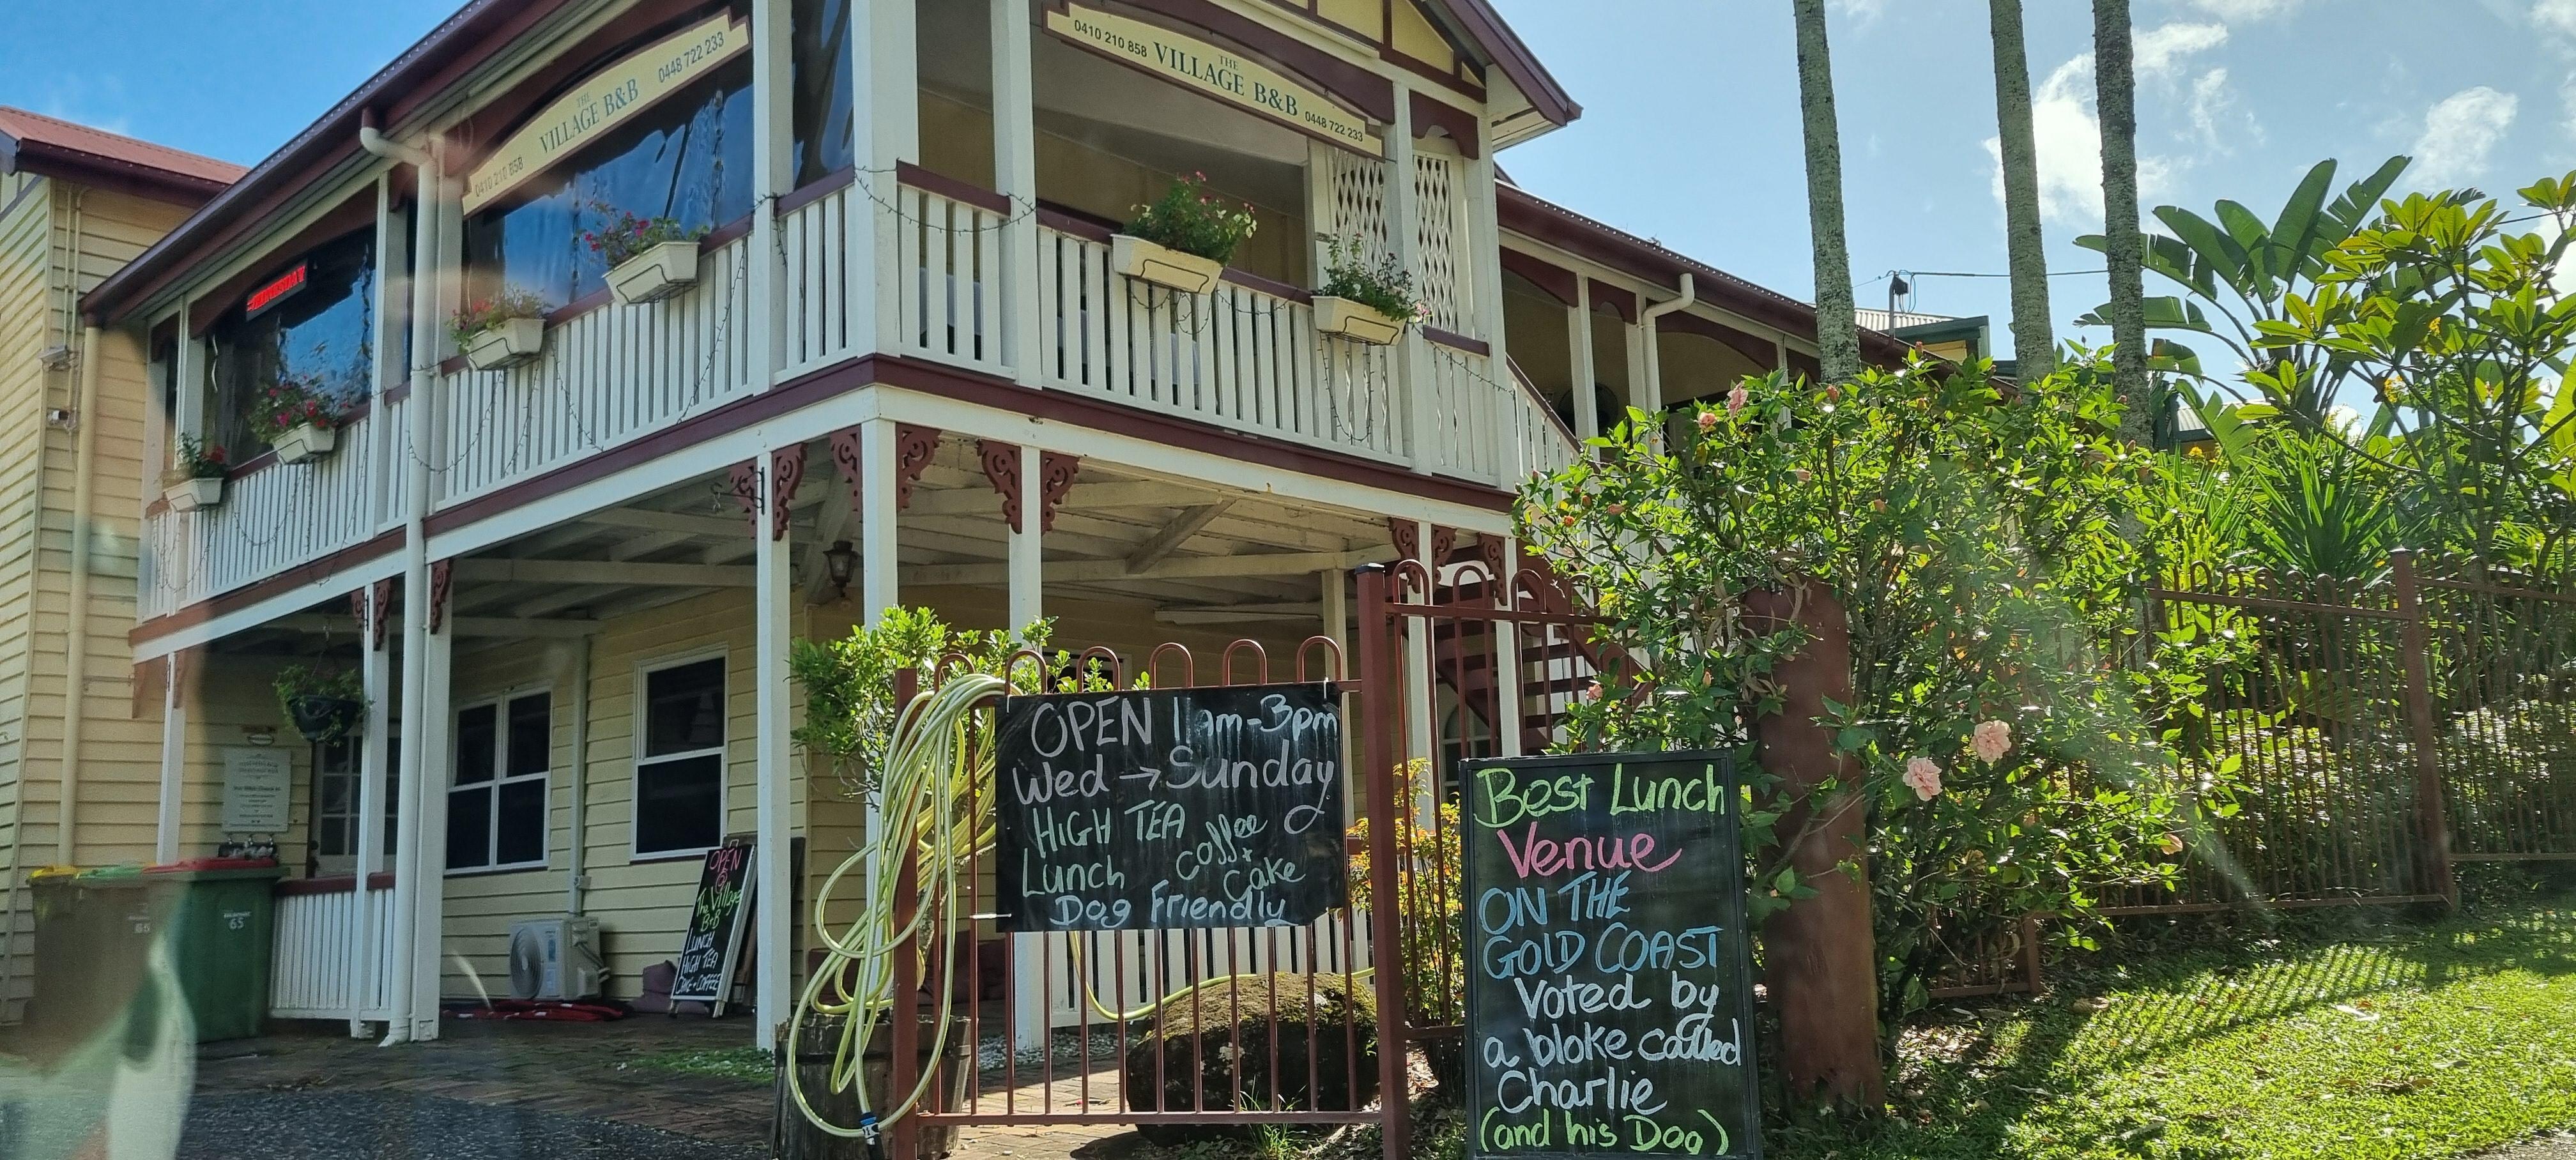 THE
VILLAGE B&B
0410 210 858
0448 722 233
0410 210 858
THE
VILLAGE B&B
0448 722 233
OPEN 11am-3pm
Wed → Sunday
HIGH TEA
Coffee
Lunch + Cake
Dog Friendly
Best Lunch
Venue
ON THE
GOLD COAST
Voted by
a bloke called
Charlie
(and his Dog)
OPEN
@
The Village
B&B
LUNCH
HIGH TEA
CAKE + COFFEE
65
65